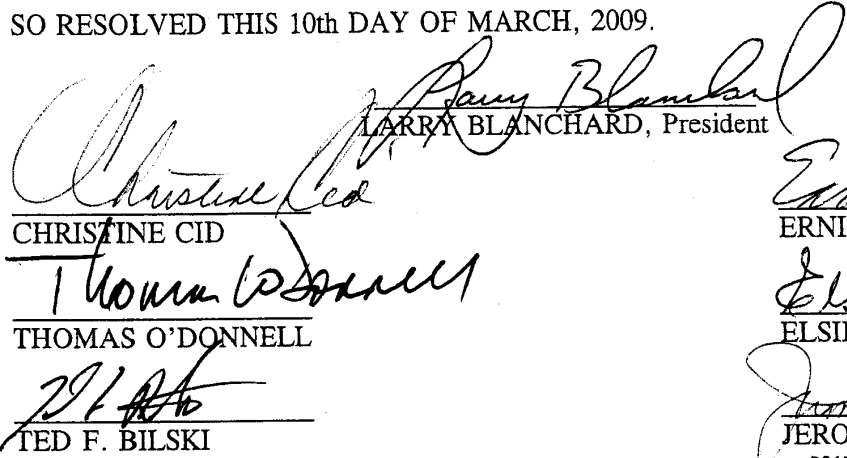 SO RESOLVED THIS 10th DAY OF MARCH, 2009.
Larry Blanchard
LARRY BLANCHARD, President
Christine Cid
CHRISTINE CID
ERNI
Thomas O'Donnell
THOMAS O'DONNELL
ELSI
TED F. BILSKI
JERO